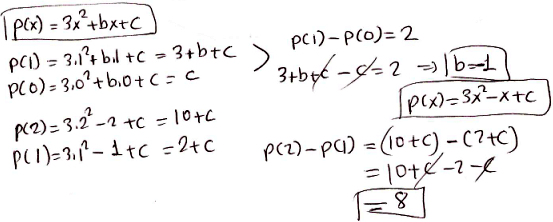 p(x) = 3x²+bx+c
p(1) = 3.1²+b.1+c = 3+b+c
p(0) = 3.0²+b.0+c = c
p(1)-p(0)=2
3+b+c-c=2 ⇒ b=-1
p(x)=3x²-x+c
p(2) = 3.2²-2+c = 10+c
p(1)=3.1²-1+c = 2+c
p(2)-p(1) = (10+c)-(2+c)
= 10+c-2-c
= 8